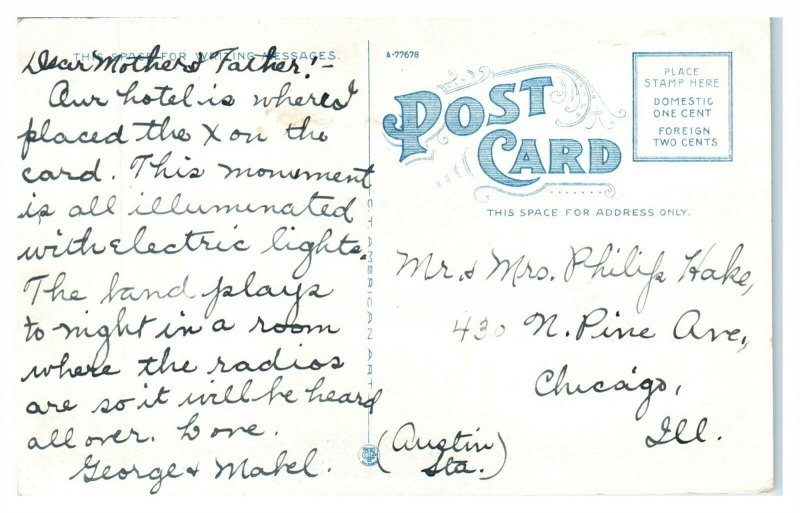 THIS SPACE FOR WRITING MESSAGES.
Dear Mother & Father:-
Our hotel is where I
placed the X on the
card. This monument
is all illuminated
with electric lights.
The band plays
to night in a room
where the radios
are so it will be heard
all over. Love.
George & Mabel.
C.T. AMERICAN ART
A-77678
POST
CARD
PLACE
STAMP HERE
DOMESTIC
ONE CENT
FOREIGN
TWO CENTS
THIS SPACE FOR ADDRESS ONLY.
Mr. & Mrs. Philip Hake,
430 N. Pine Ave.,
Chicago,
Ill.
(Austin
Sta.)